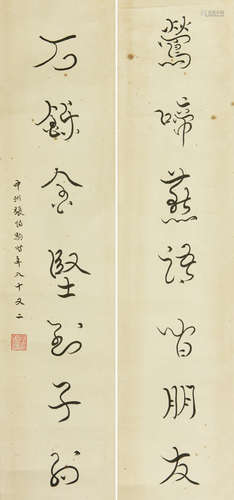 鶯啼燕語皆朋友
石鑠金堅到子孫
中州張伯駒時年八十又二